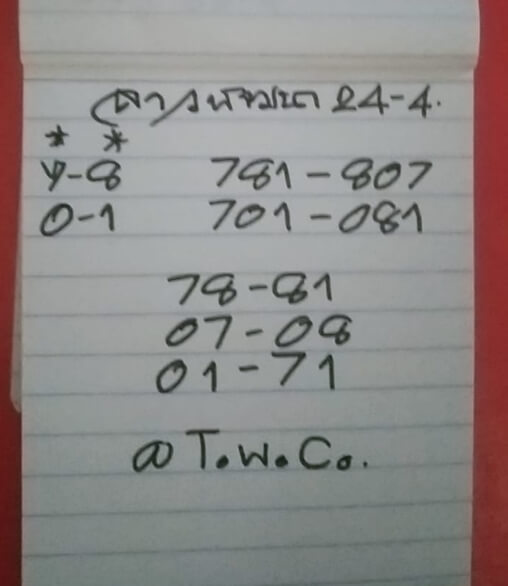 ลาวพัฒนา 24-4.
* *
7-8 781-807
0-1 701-081
78-81
07-08
01-71
@ T.W.Co.